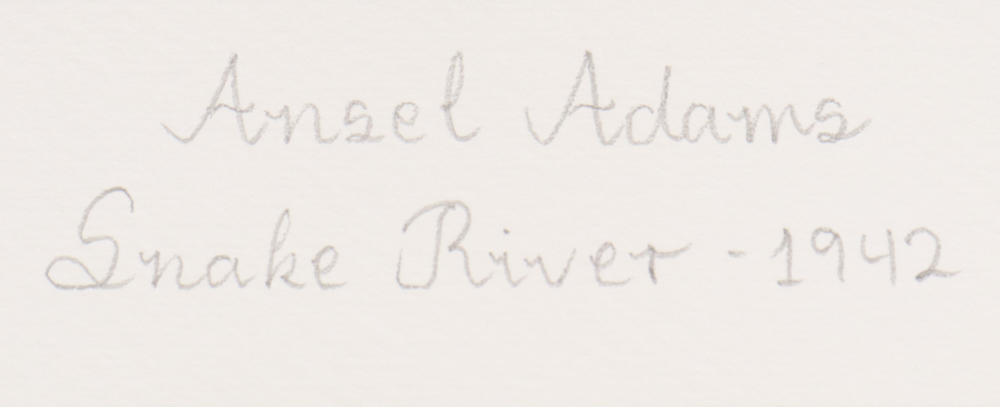 Ansel Adams
Snake River - 1942